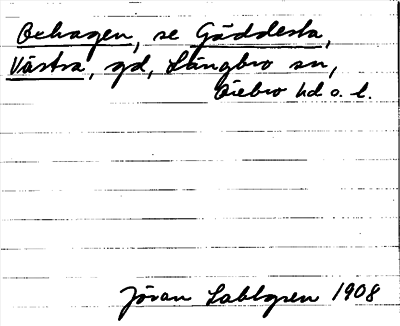 Oxhagen, se Gäddesta,
Västra, gd, Längbro sn,
Örebro hd o. l.
Jöran Sahlgren 1908